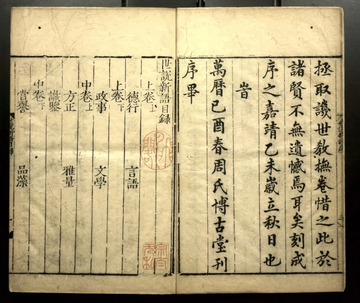 拯取譏世敎撫卷惜之此於
諸賢不無遺憾焉耳矣刻成
序之嘉靖乙未歲立秋日也
旹
萬曆己酉春周氏博古堂刊
序畢
世說新語目録
上卷上
德行 言語
上卷下
政事 文學
中卷上
方正 雅量
識鑒
中卷下
賞譽 品藻